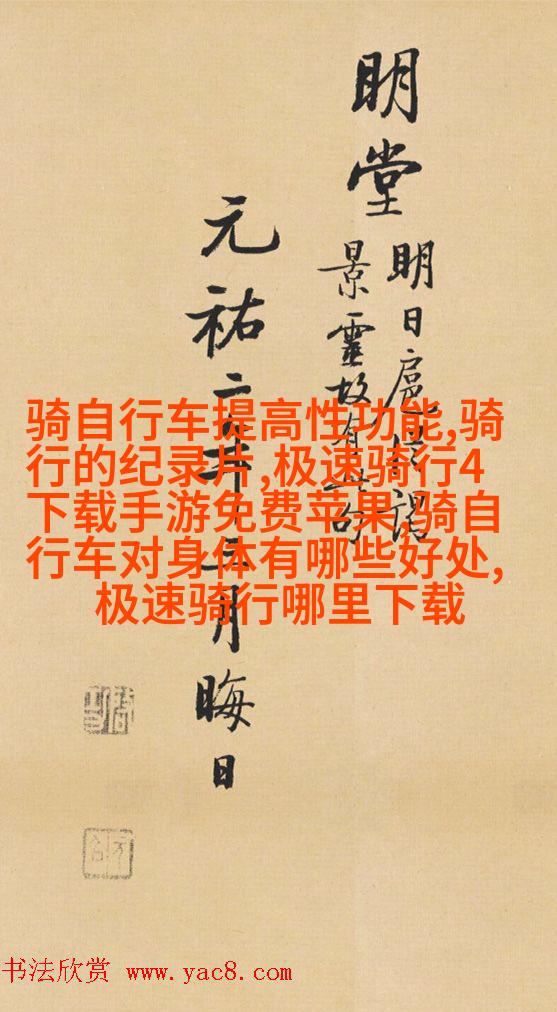 明堂
明日扈謁
景靈故有此句
元祐二年三月晦日
骑自行车提高性功能,骑
行的纪录片,极速骑行4
下载手游免费苹果,骑自
行车对身体有哪些好处,
极速骑行哪里下载
书法欣赏 www.yac8.com